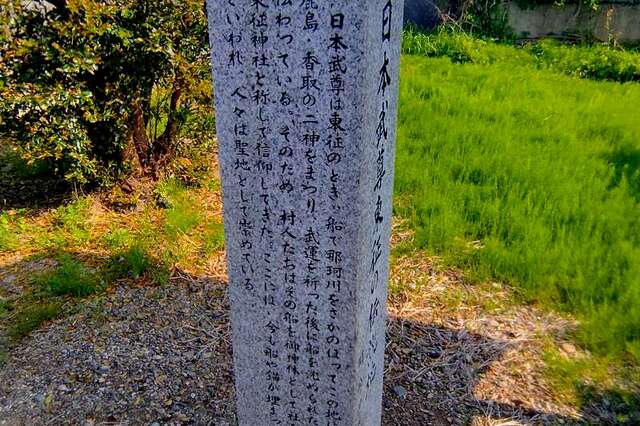 日本武尊東征の
日本武尊は東征のとき、船で那珂川をさかのぼってこの地
鹿島 香取の二神をまつり、武運を祈った後に船を沈められた
伝わっている。そのため、村人たちはその船を御神体としてな
東征神社と称して信仰してきた。ここには、今も船や船が埋まっ
といわれ 人々は聖地として崇めている。